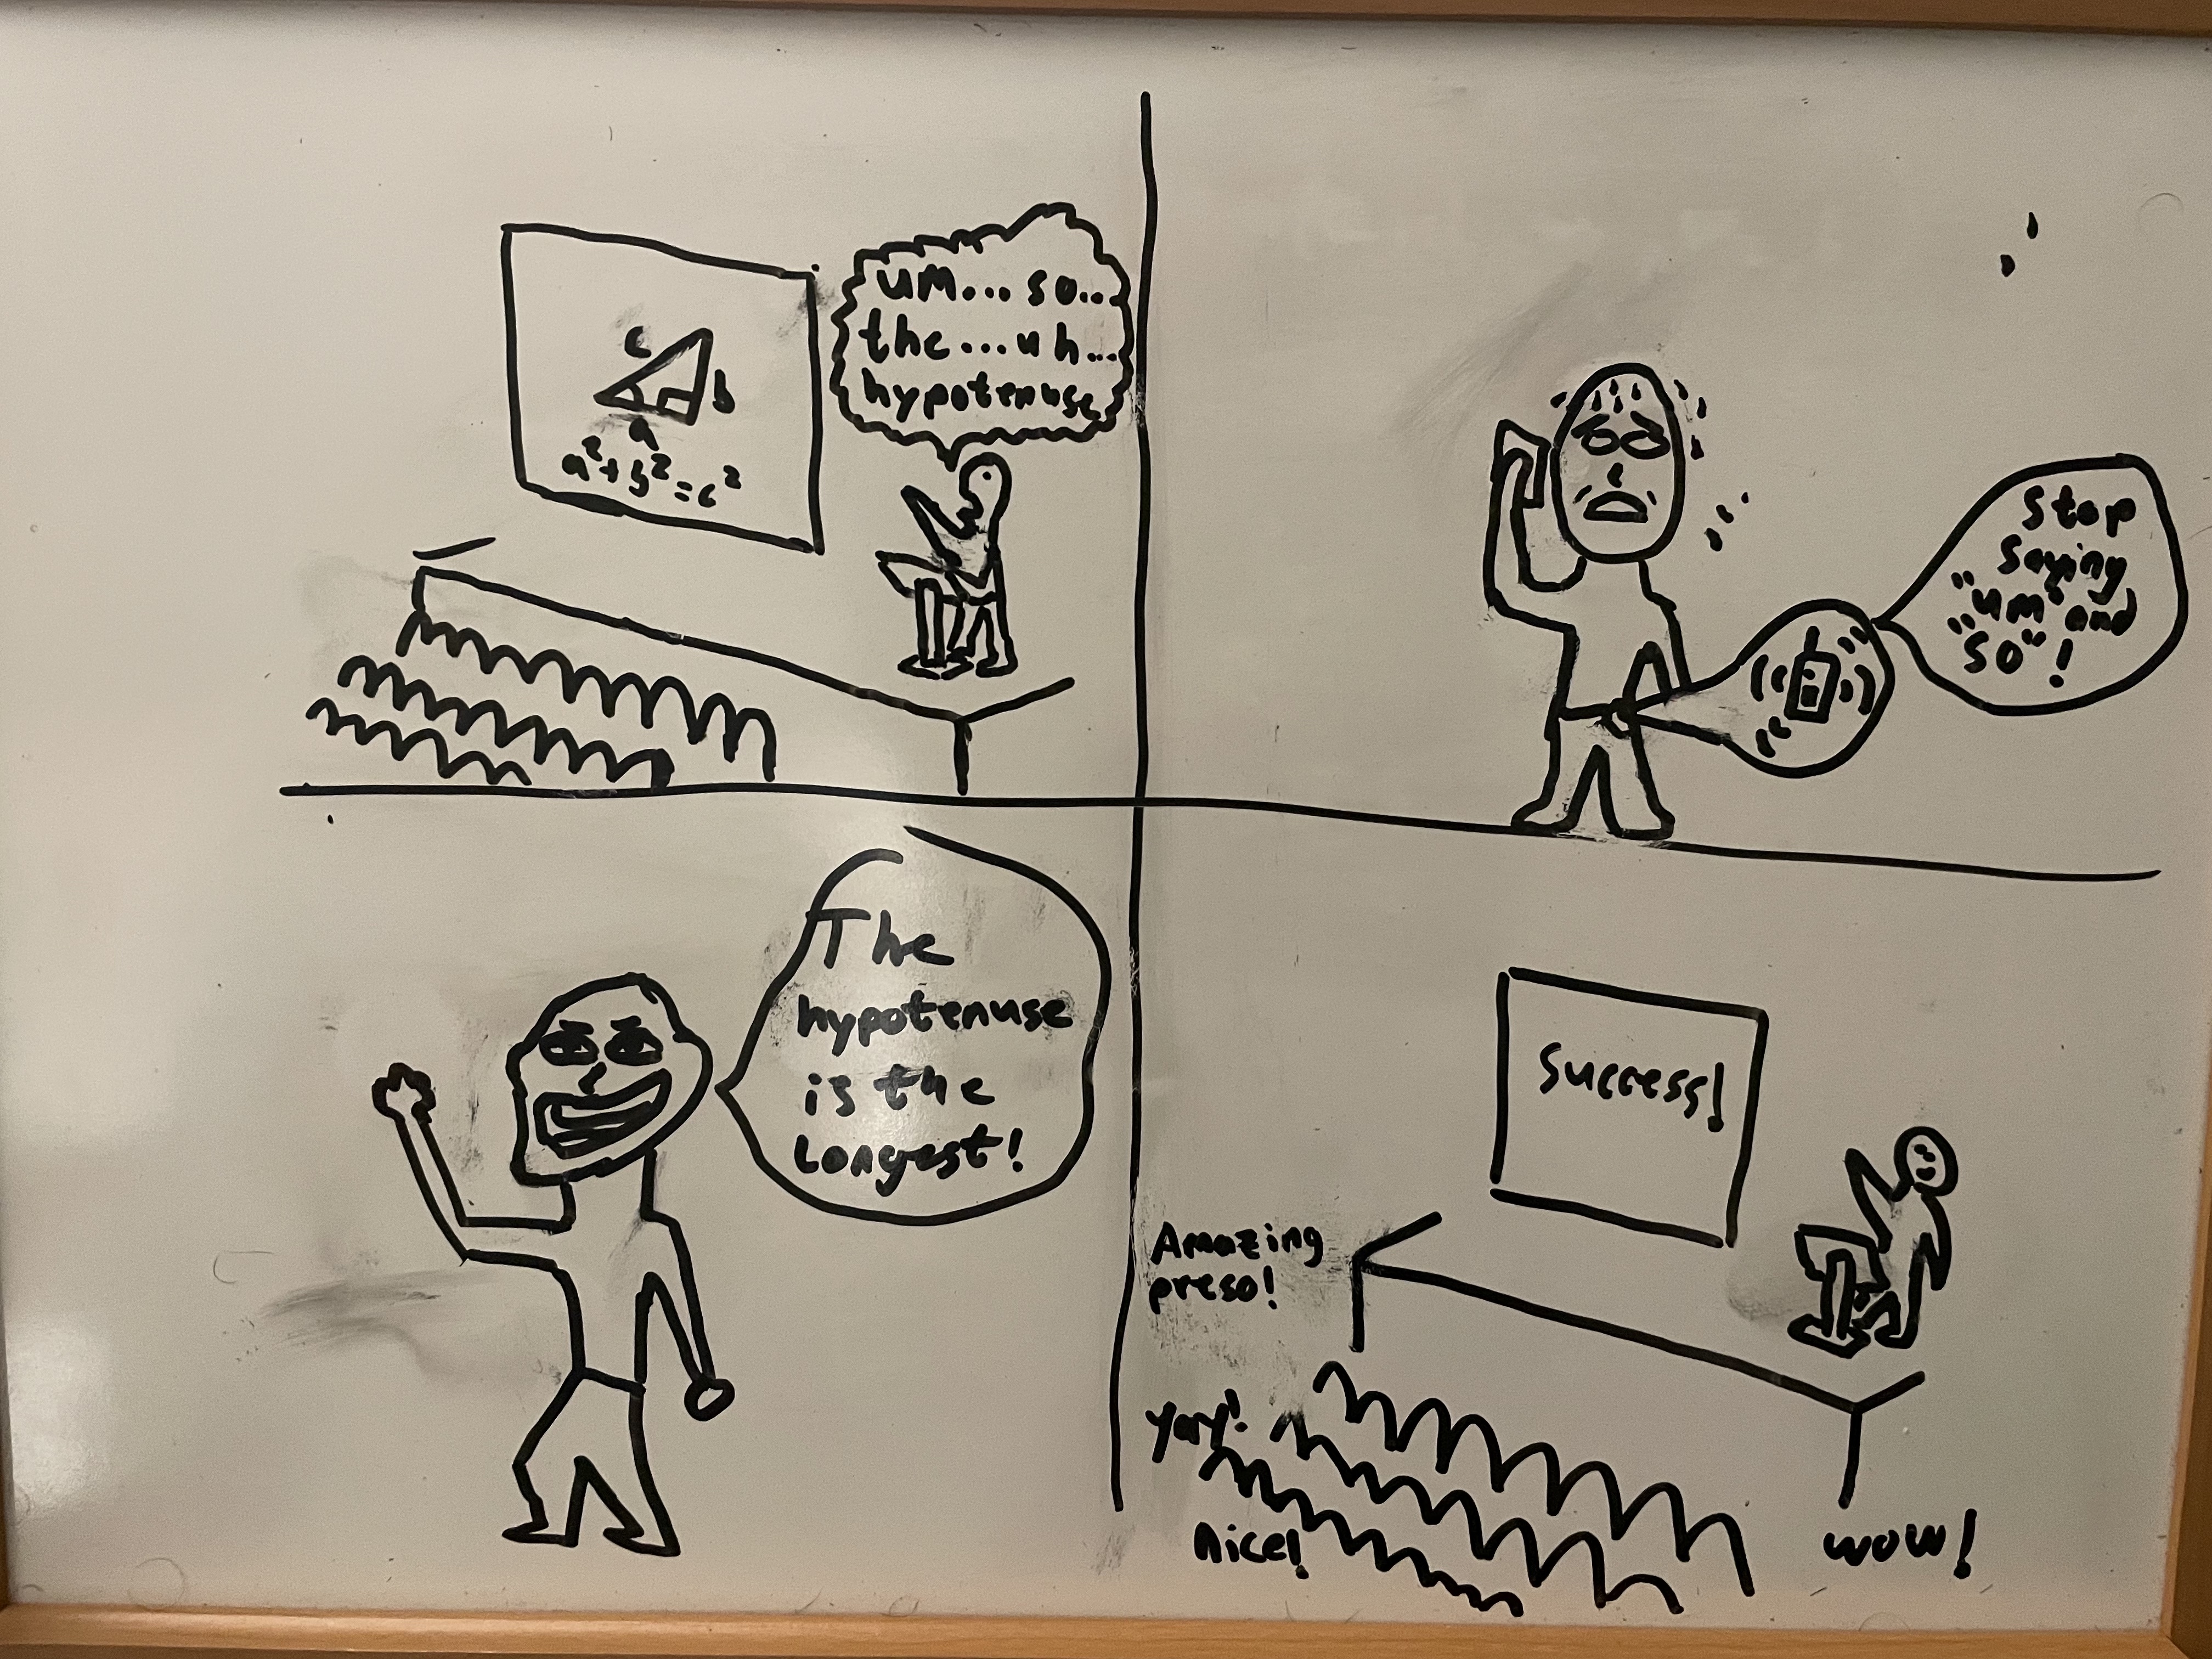 um... so...
the... uh...
hypotenuse
c
b
a
a²+b²=c²
Stop
saying
"um" and
"so"!
The
hypotenuse
is the
Longest!
Success!
Amazing
preso!
yay!
nice!
wow!